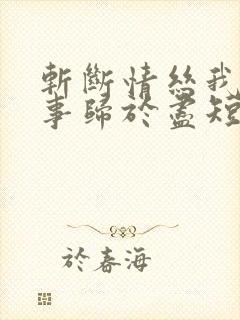 斬斷情絲我
事歸於盡短
於春海